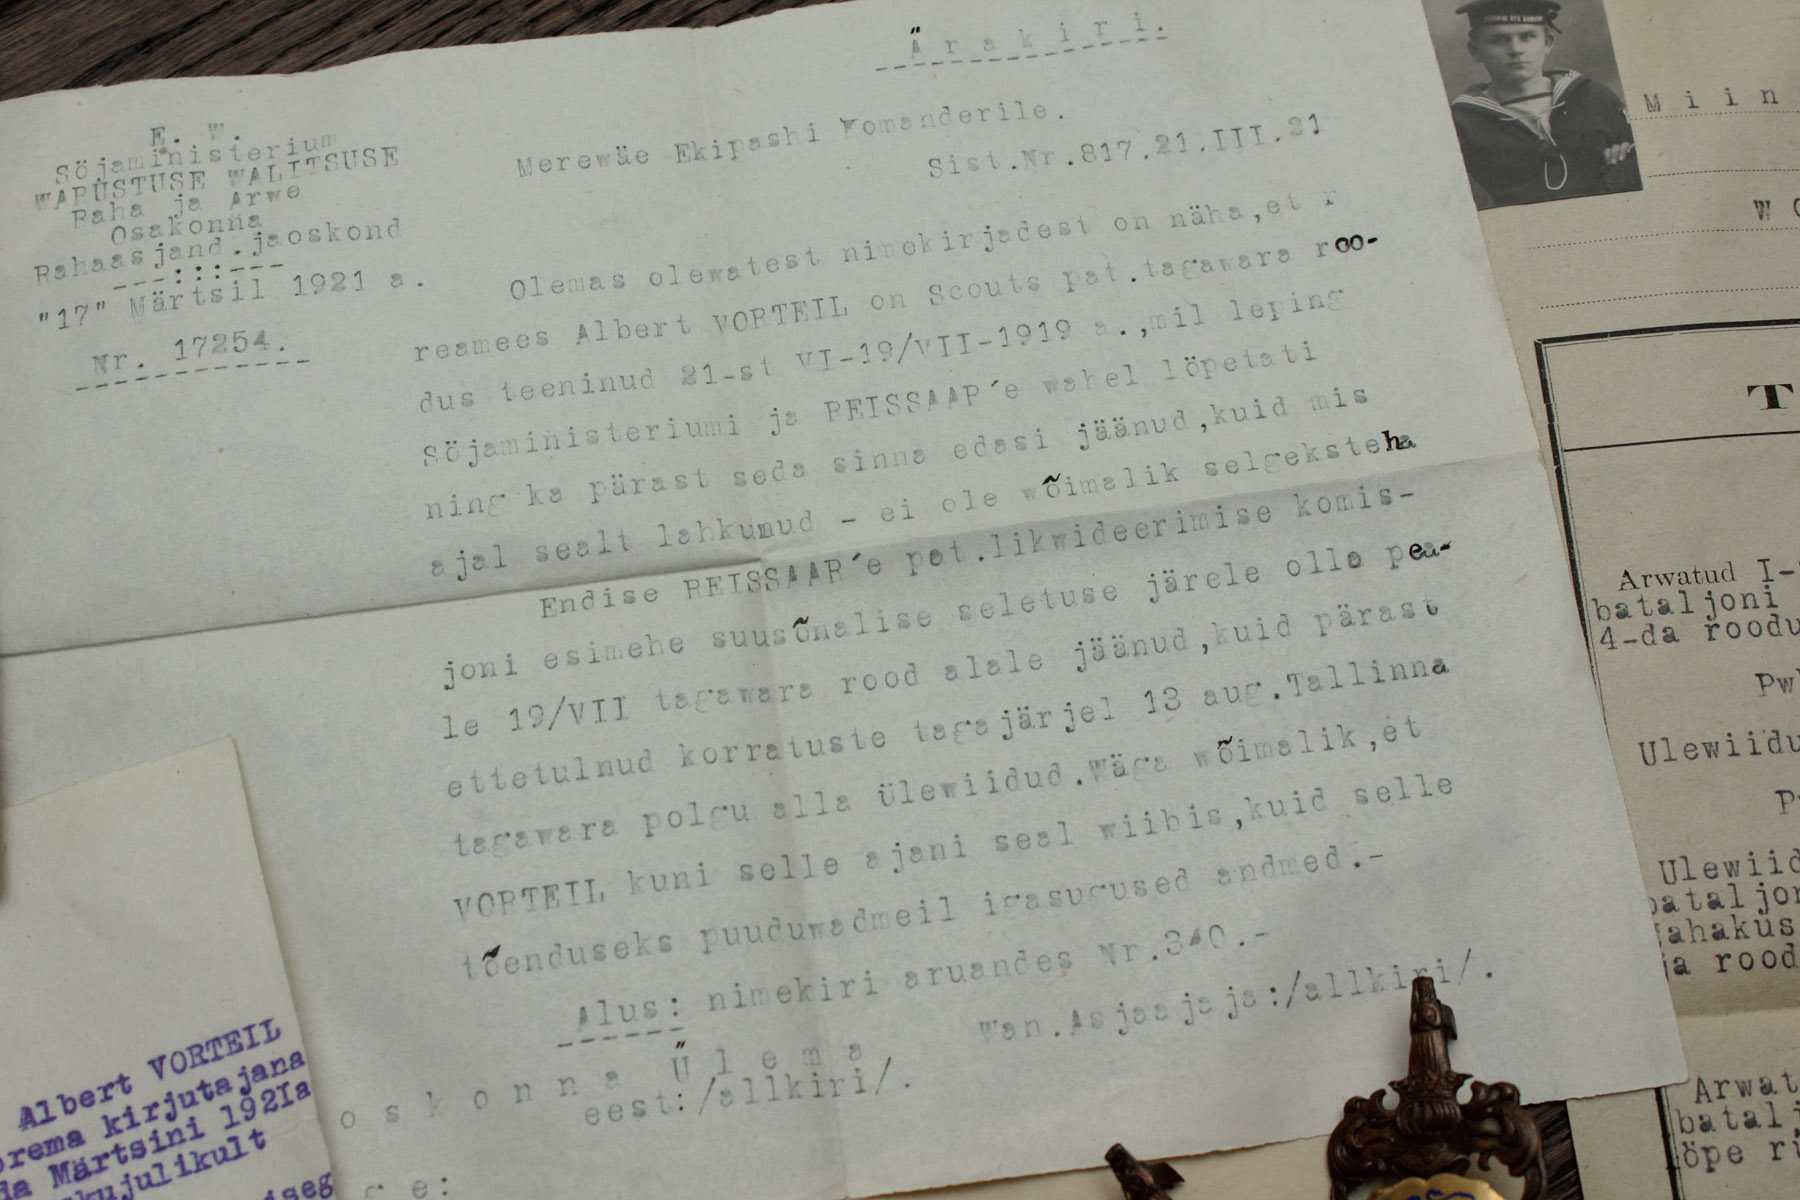 Ärakiri.
E. W.
Söjaministerium
WARUSTUSE WALITSUSE
Raha ja Arwe
Osakonna
Rahaasjand.jaoskond
---:::---
"17" Märtsil 1921 a.
Nr. 17254.
Merewäe Ekipashi Komanderile.
Sist.Nr.817.21.III.21
Olemas olewatest nimekirjadest on näha,et r
reamees Albert VORTEIL on Scouts pat.tagawara roo-
dus teeninud 21-st VI-19/VII-1919 a.,mil leping
Söjaministeriumi ja REISSAAR´e wahel löpetati
ning ka pärast seda sinna edasi jäänud,kuid mis
ajal sealt lahkunud - ei ole wõimalik selgeksteha
Endise REISSAAR´e pat.likwideerimise komis-
joni esimehe suusõnalise seletuse järele olla pea-
le 19/VII tagawara rood alale jäänud,kuid pärast
ettetulnud korratuste tagajärjel 13 aug.Tallinna
tagawara polgu alla ülewiidud.Wäga wõimalik,et
VORTEIL kuni selle ajani seal wiibis,kuid selle
tõenduseks puuduwadmeil igasugused andmed.-
Alus: nimekiri aruandes Nr.340.-
Wan.Asjaajaja:/allkiri/.
oskonna Ülema
eest:/allkiri/.
ge:
Albert VORTEIL
orema kirjutajana
da Märtsini 1921a
kujulikult
iseg
Miin
WO
T
Arwatud I-
bataljoni
4-da roodu
Pw
Ulewiidu
P
Ulewiid
bataljon
jahakus
ja rood
Arwat
batalj
öpe rü